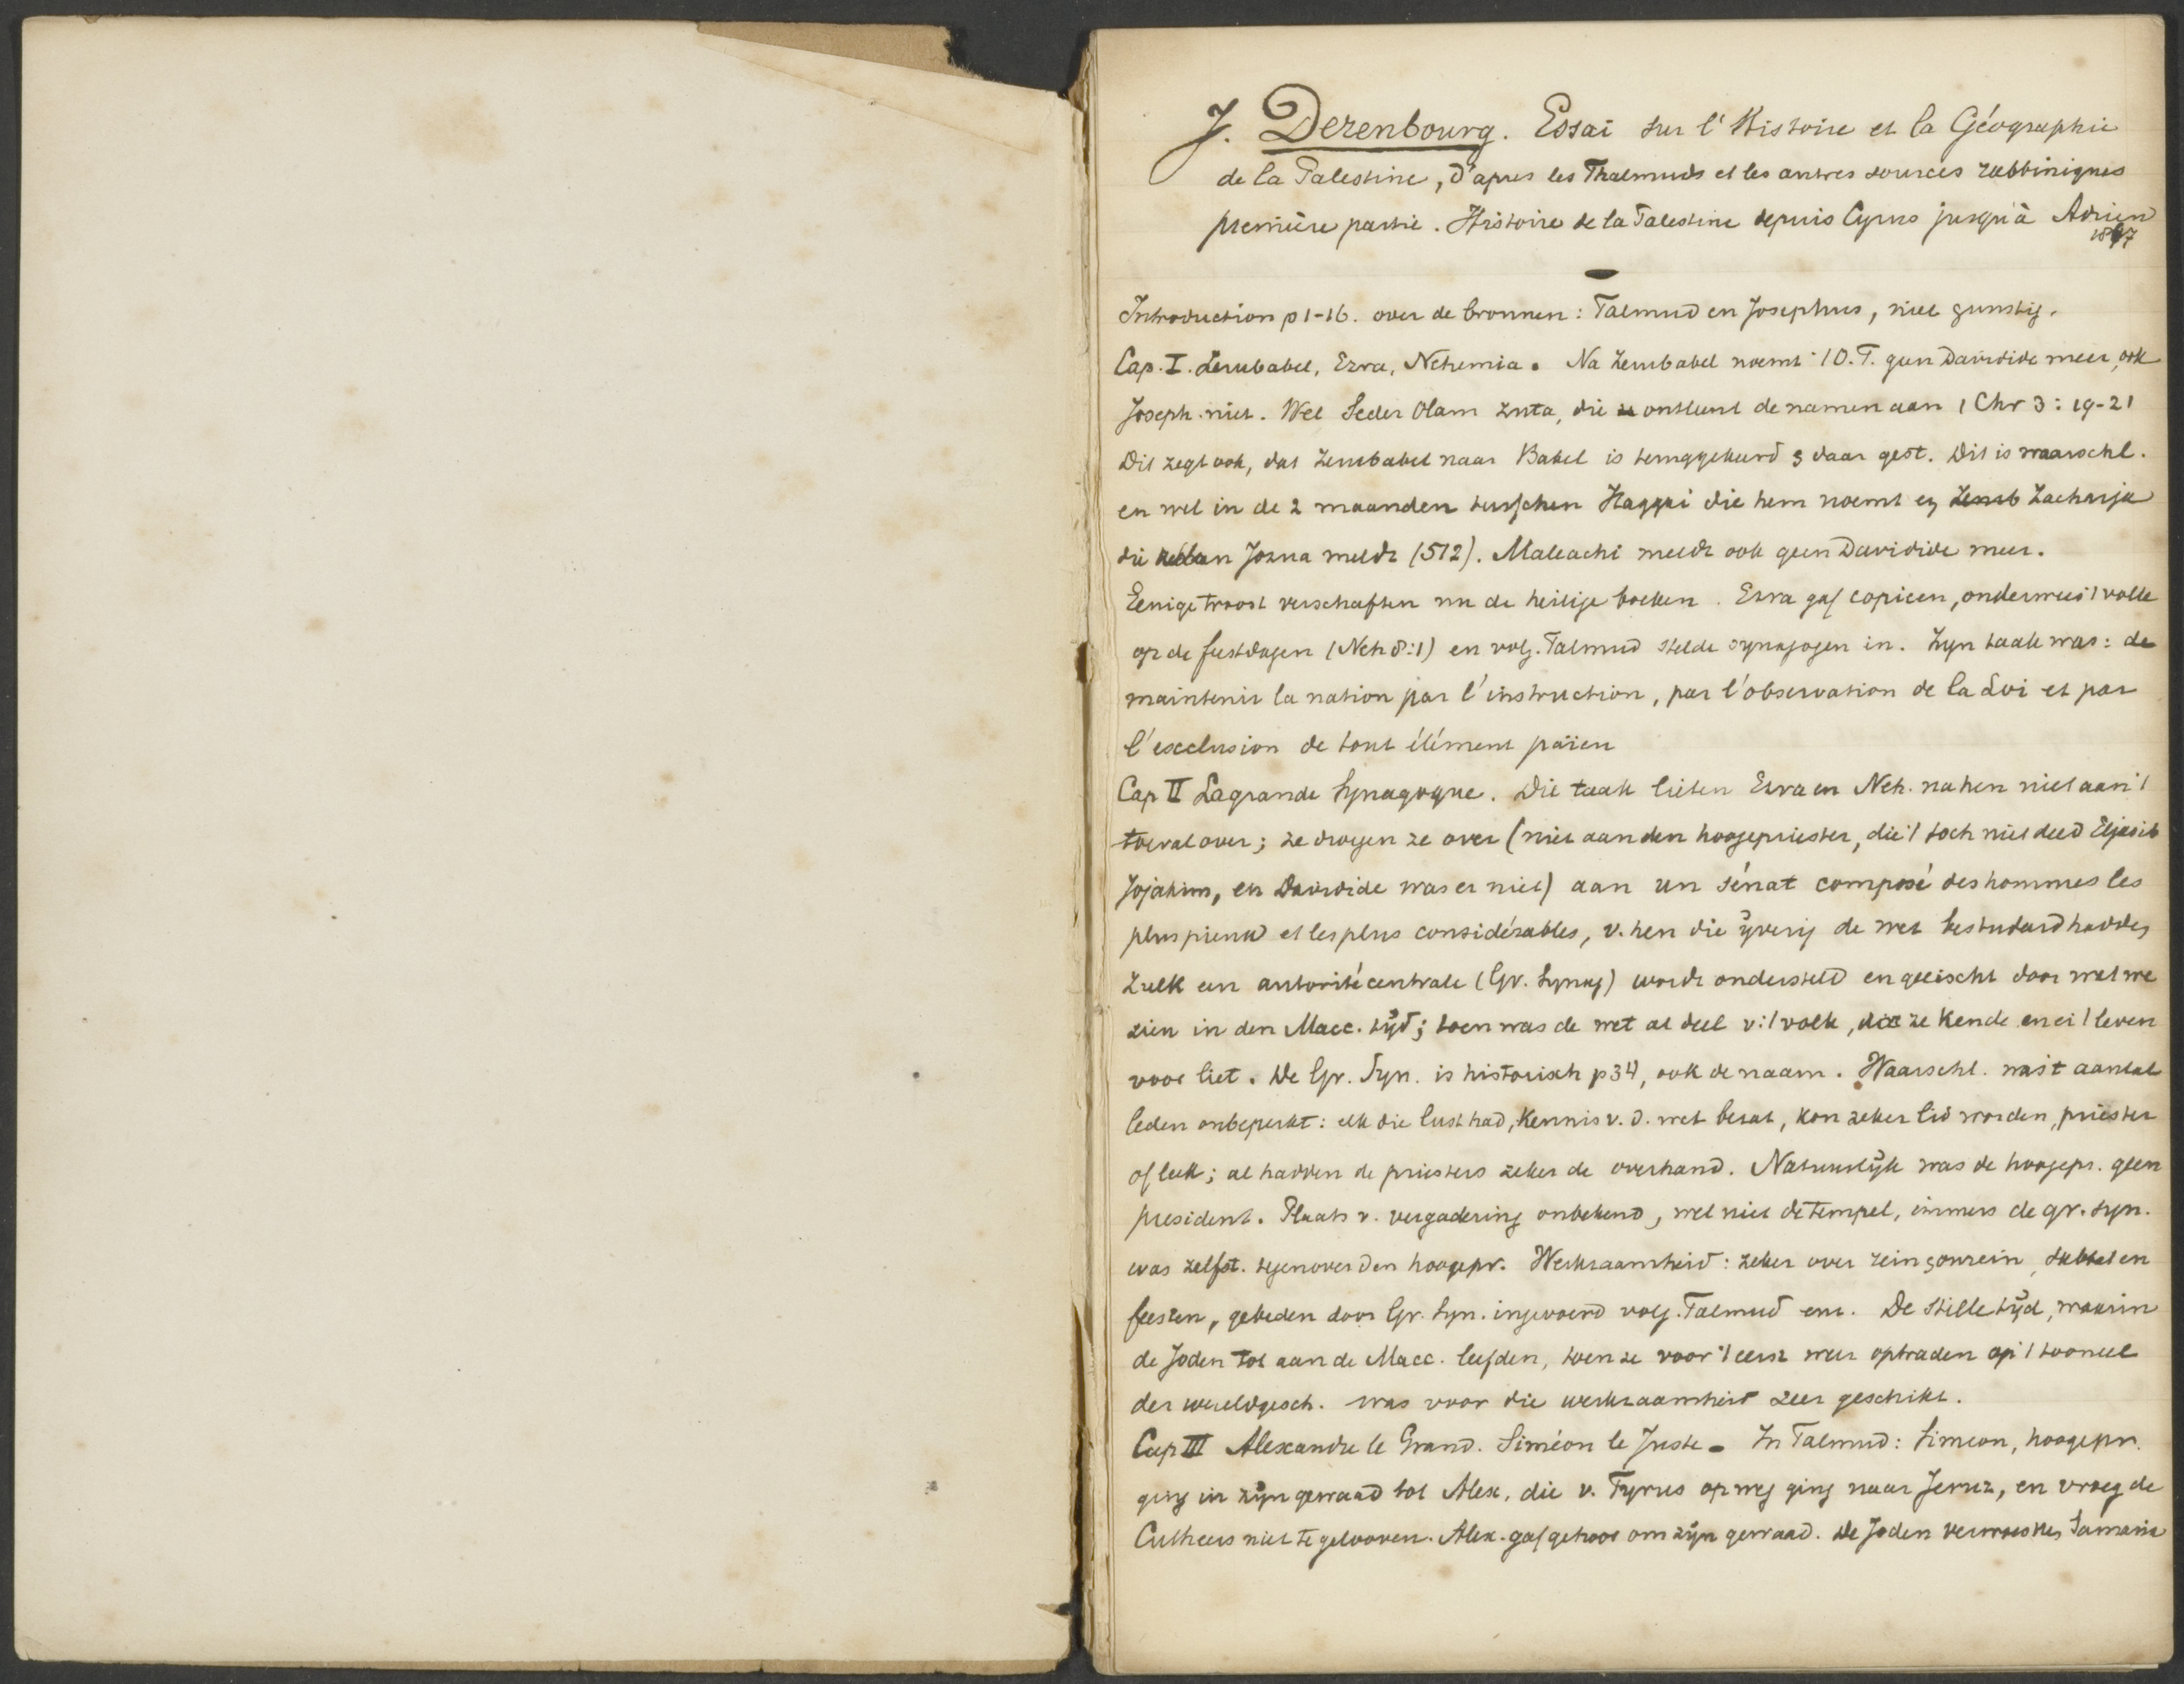 J. Derenbourg. Essai sur l'Histoire et la Géographie
de la Palestine, d'apres les Thalmuds et les autres sources rabbiniques
première partie. Histoire de la Palestine depuis Cyrus jusqu'à Adrien
1867
Introduction p 1-16. over de bronnen: Talmud en Josephus, niet gunstig.
Cap. I. Zerubabel, Ezra, Nehemia. Na Zerubabel noemt 't O.T. geen Davidide meer, ook
Joseph. niet. Wel Seder Olam Zuta, die ontleent de namen aan 1 Chr 3: 19-21
Dit zegt ook, dat Zerubabel naar Babel is teruggekeerd & daar gest. Dit is waarschl.
en wel in de 2 maanden tusschen Haggai die hem noemt en Zacharja
die alleen Jozua meldt (512). Maleachi meldt ook geen Davidide meer.
Eenige troost verschaften nu de heilige boeken. Ezra gaf copieen, onderwees 't volk
op de feestdagen (Neh 8:1) en volg. Talmud stelde synagogen in. Zijn taak was: de
maintenir la nation par l'instruction, par l'observation de la Loi et par
l'exclusion de tout élément païen
Cap II La grande Synagogue. Die taak lieten Ezra en Neh. na hen niet aan 't
toeval over; ze droegen ze over (niet aan den hoogepriester, die 't toch niet deed Eljasib
Jojakim, en Davidide was er niet) aan un sénat composé des hommes les
plus pieux et les plus considérables, v. hen die ijverig de wet bestudeerd hadden
Zulk een autorité centrale (Gr. Synag) wordt ondersteld en geëischt door wat we
zien in den Macc. tijd; toen was de wet al deel v. 't volk, dat ze kende en er 't leven
voor liet. De Gr. Syn. is historisch p 34, ook de naam. Waarschl. was 't aantal
leden onbeperkt: elk die lust had, kennis v. d. wet bezat, kon zeker lid worden, priester
of leek; al hadden de priesters zeker de overhand. Natuurlijk was de hoogepr. geen
president. Plaats v. vergadering onbekend, wel niet de tempel, immers de gr. syn.
was zelfst. tegenover den hoogepr. Werkzaamheid: zeker over rein & onrein, sabbat en
feesten, gebeden door Gr. Syn. ingevoerd volg. Talmud enz. De stille tijd, waarin
de Joden tot aan de Macc. leefden, toen ze voor 't eerst weer optraden op 't tooneel
der wereldgesch. was voor die werkzaamheid zeer geschikt.
Cap III Alexandre le Grand. Siméon le Juste. In Talmud: Simeon, hoogepr.
ging in zijn gewaad tot Alex. die v. Tyrus op weg ging naar Jeruz, en vroeg de
Cutheers niet te gelooven. Alex. gaf gehoor om zijn gewaad. De Joden verwoestten Samaria